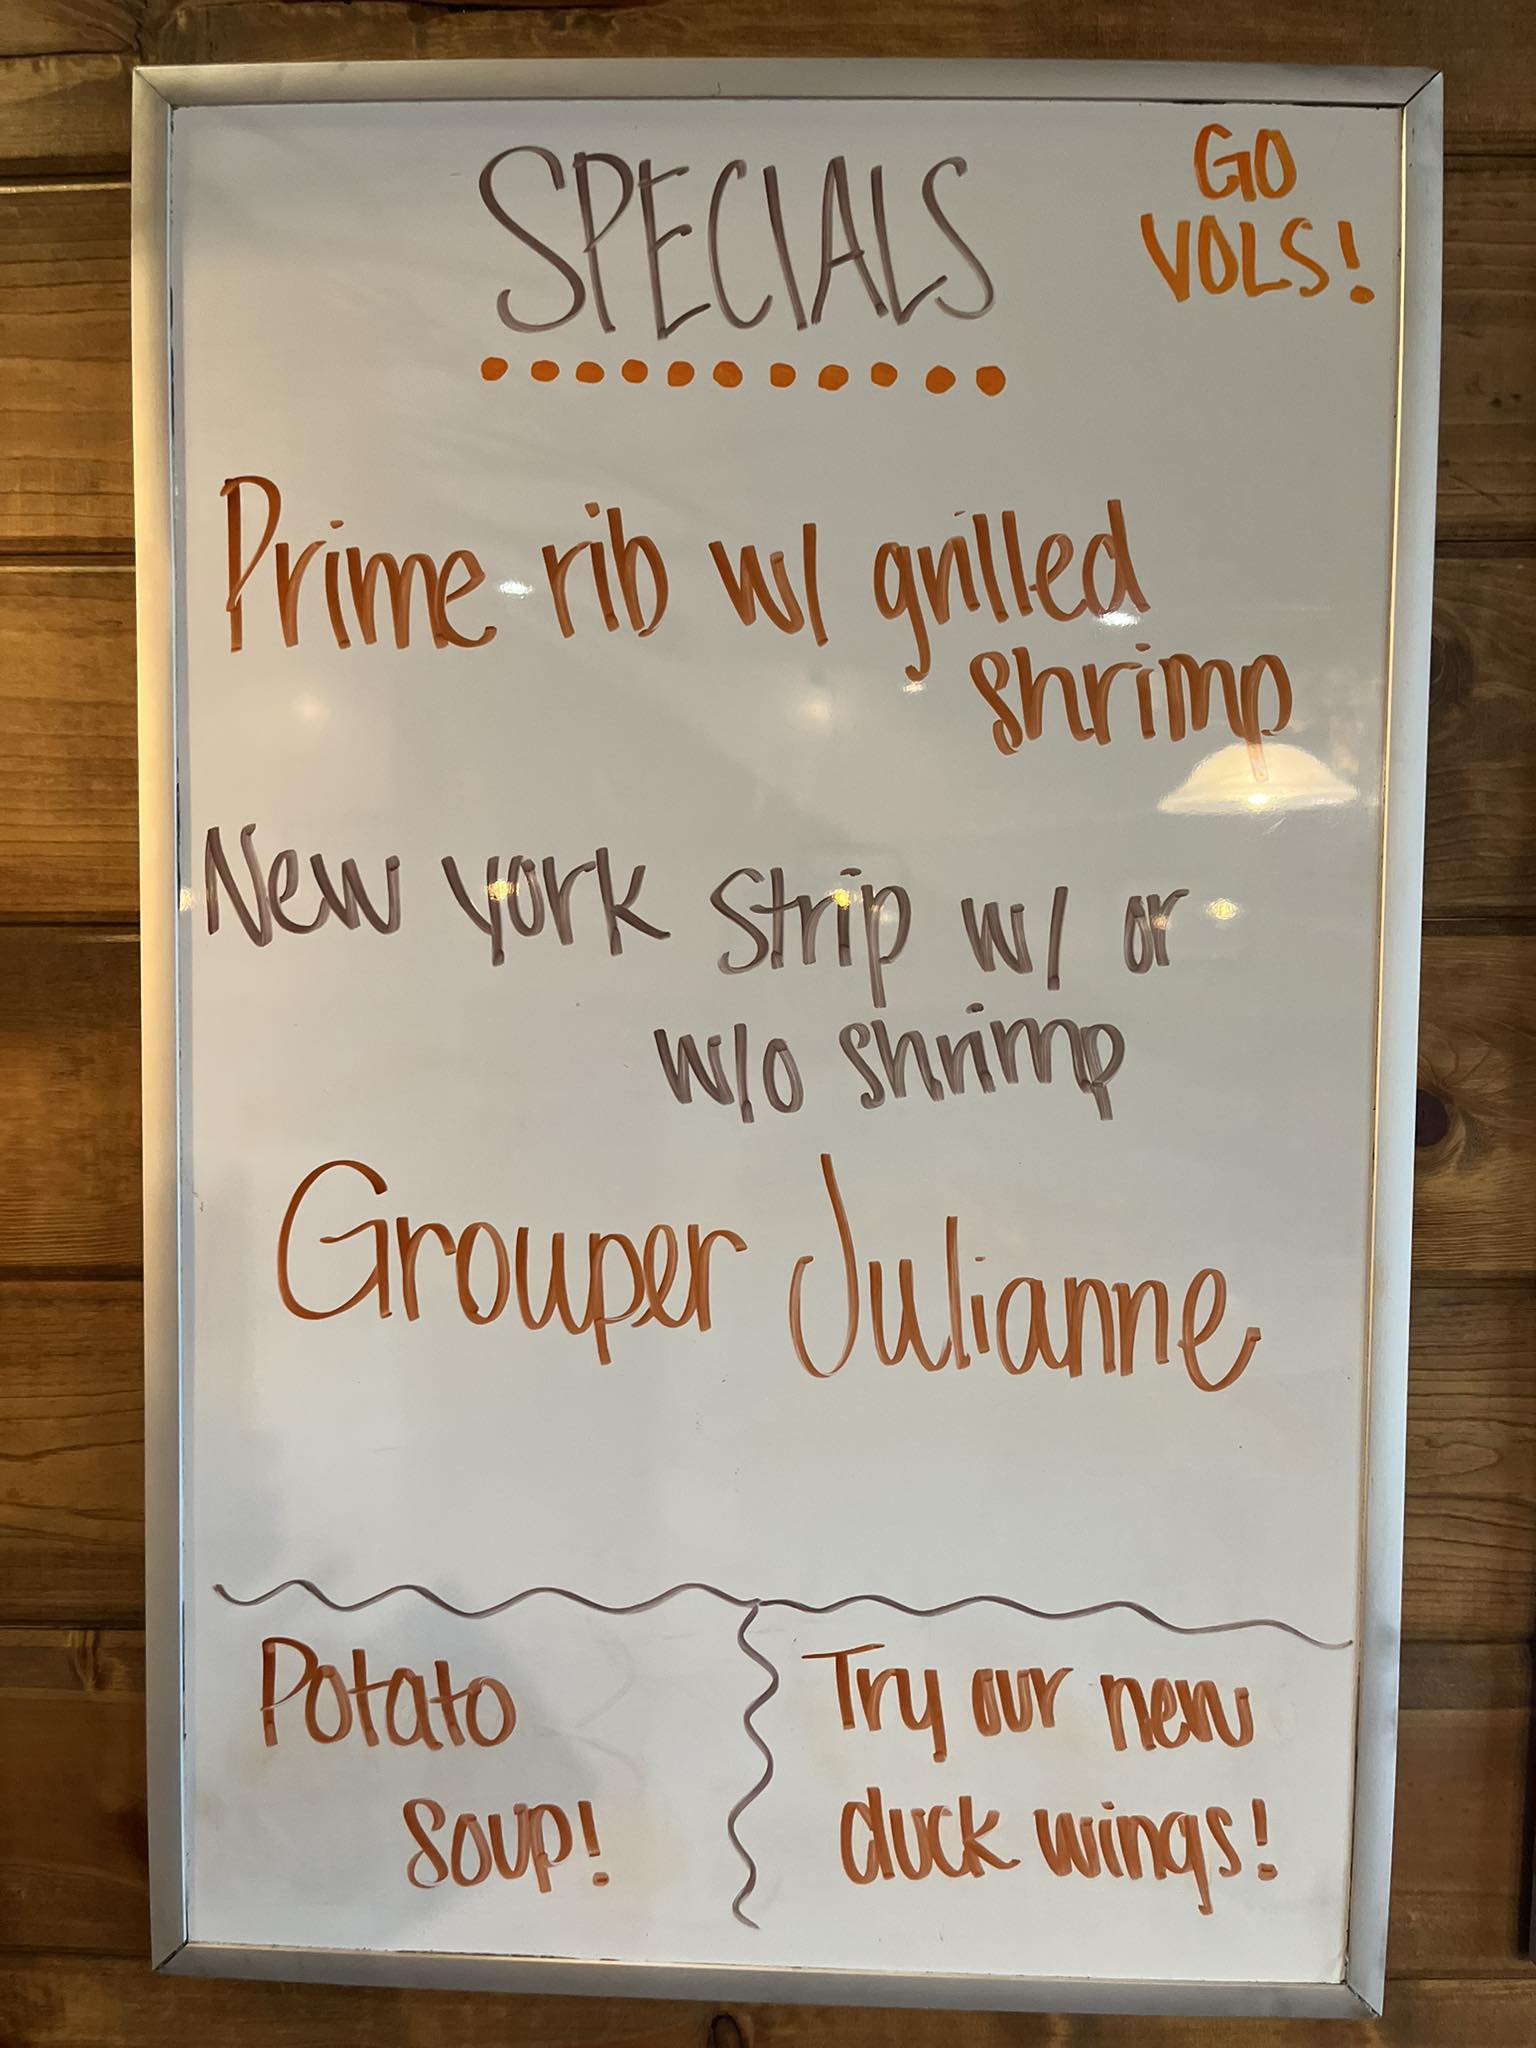 SPECIALS
GO
VOLS!
Prime rib w/ grilled
shrimp
New York Strip w/ or
w/o shrimp
Grouper Julianne
Potato
soup!
Try our new
duck wings!